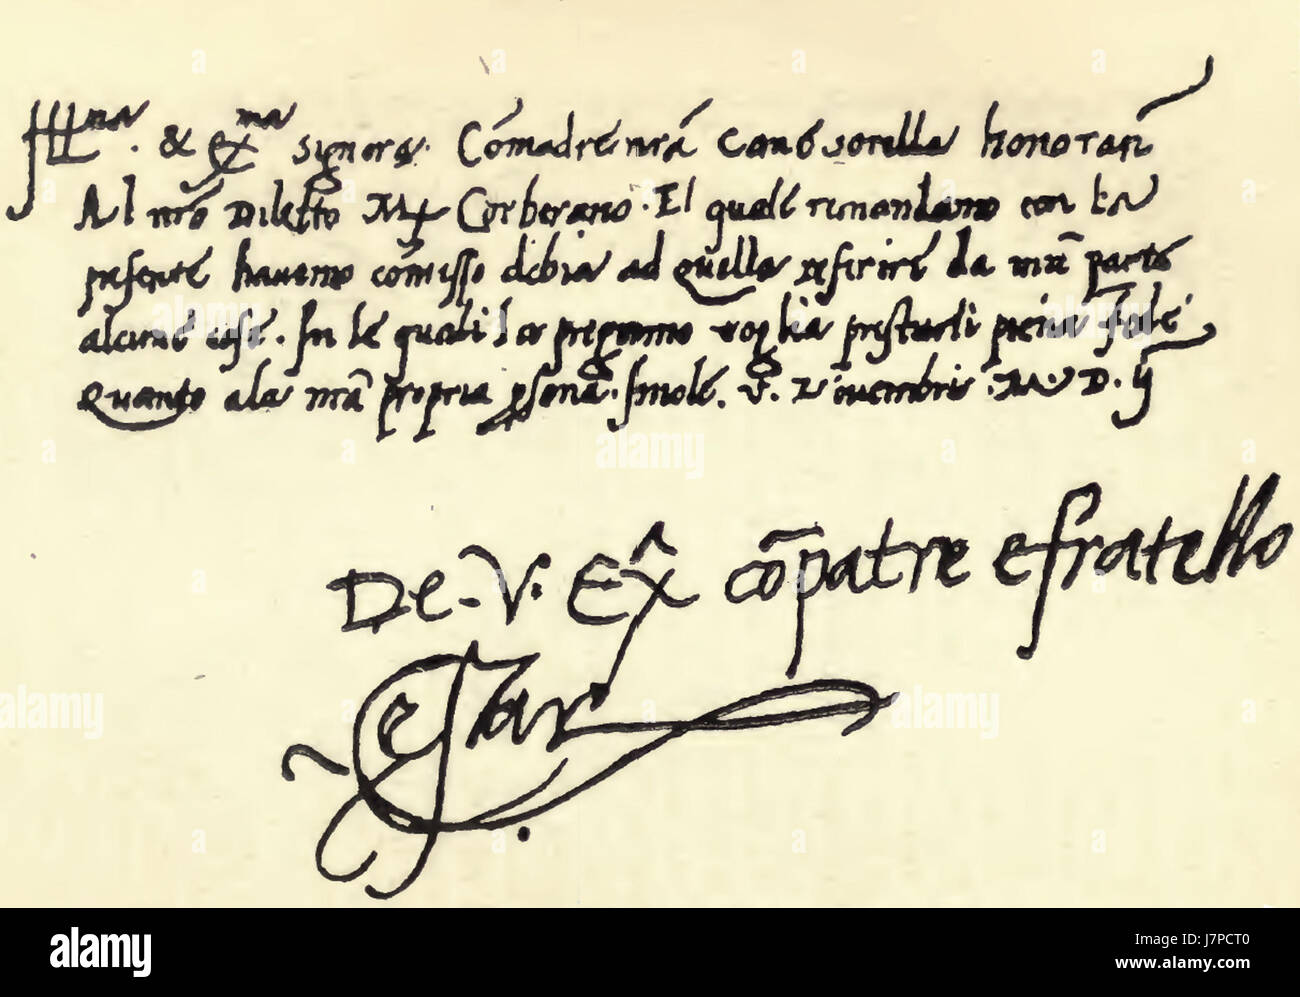 Ill.ma & ex.ma signora. Cōmadre nrā came sorella honoran
Al nrō Diletto Mx Corberano. El quale rimandamo con la
presente havemo cōmisso debia ad quella referire da nrā parte
alcune cose. In le quali la pregamo voglia prestarli piena fede
Quanto a la nrā propria psona. Imole. V. Novembris. M. D. ij
De. V. Ex. cōpatre e fratello
Cesar
alamy
Image ID: J7PCT0
www.alamy.com